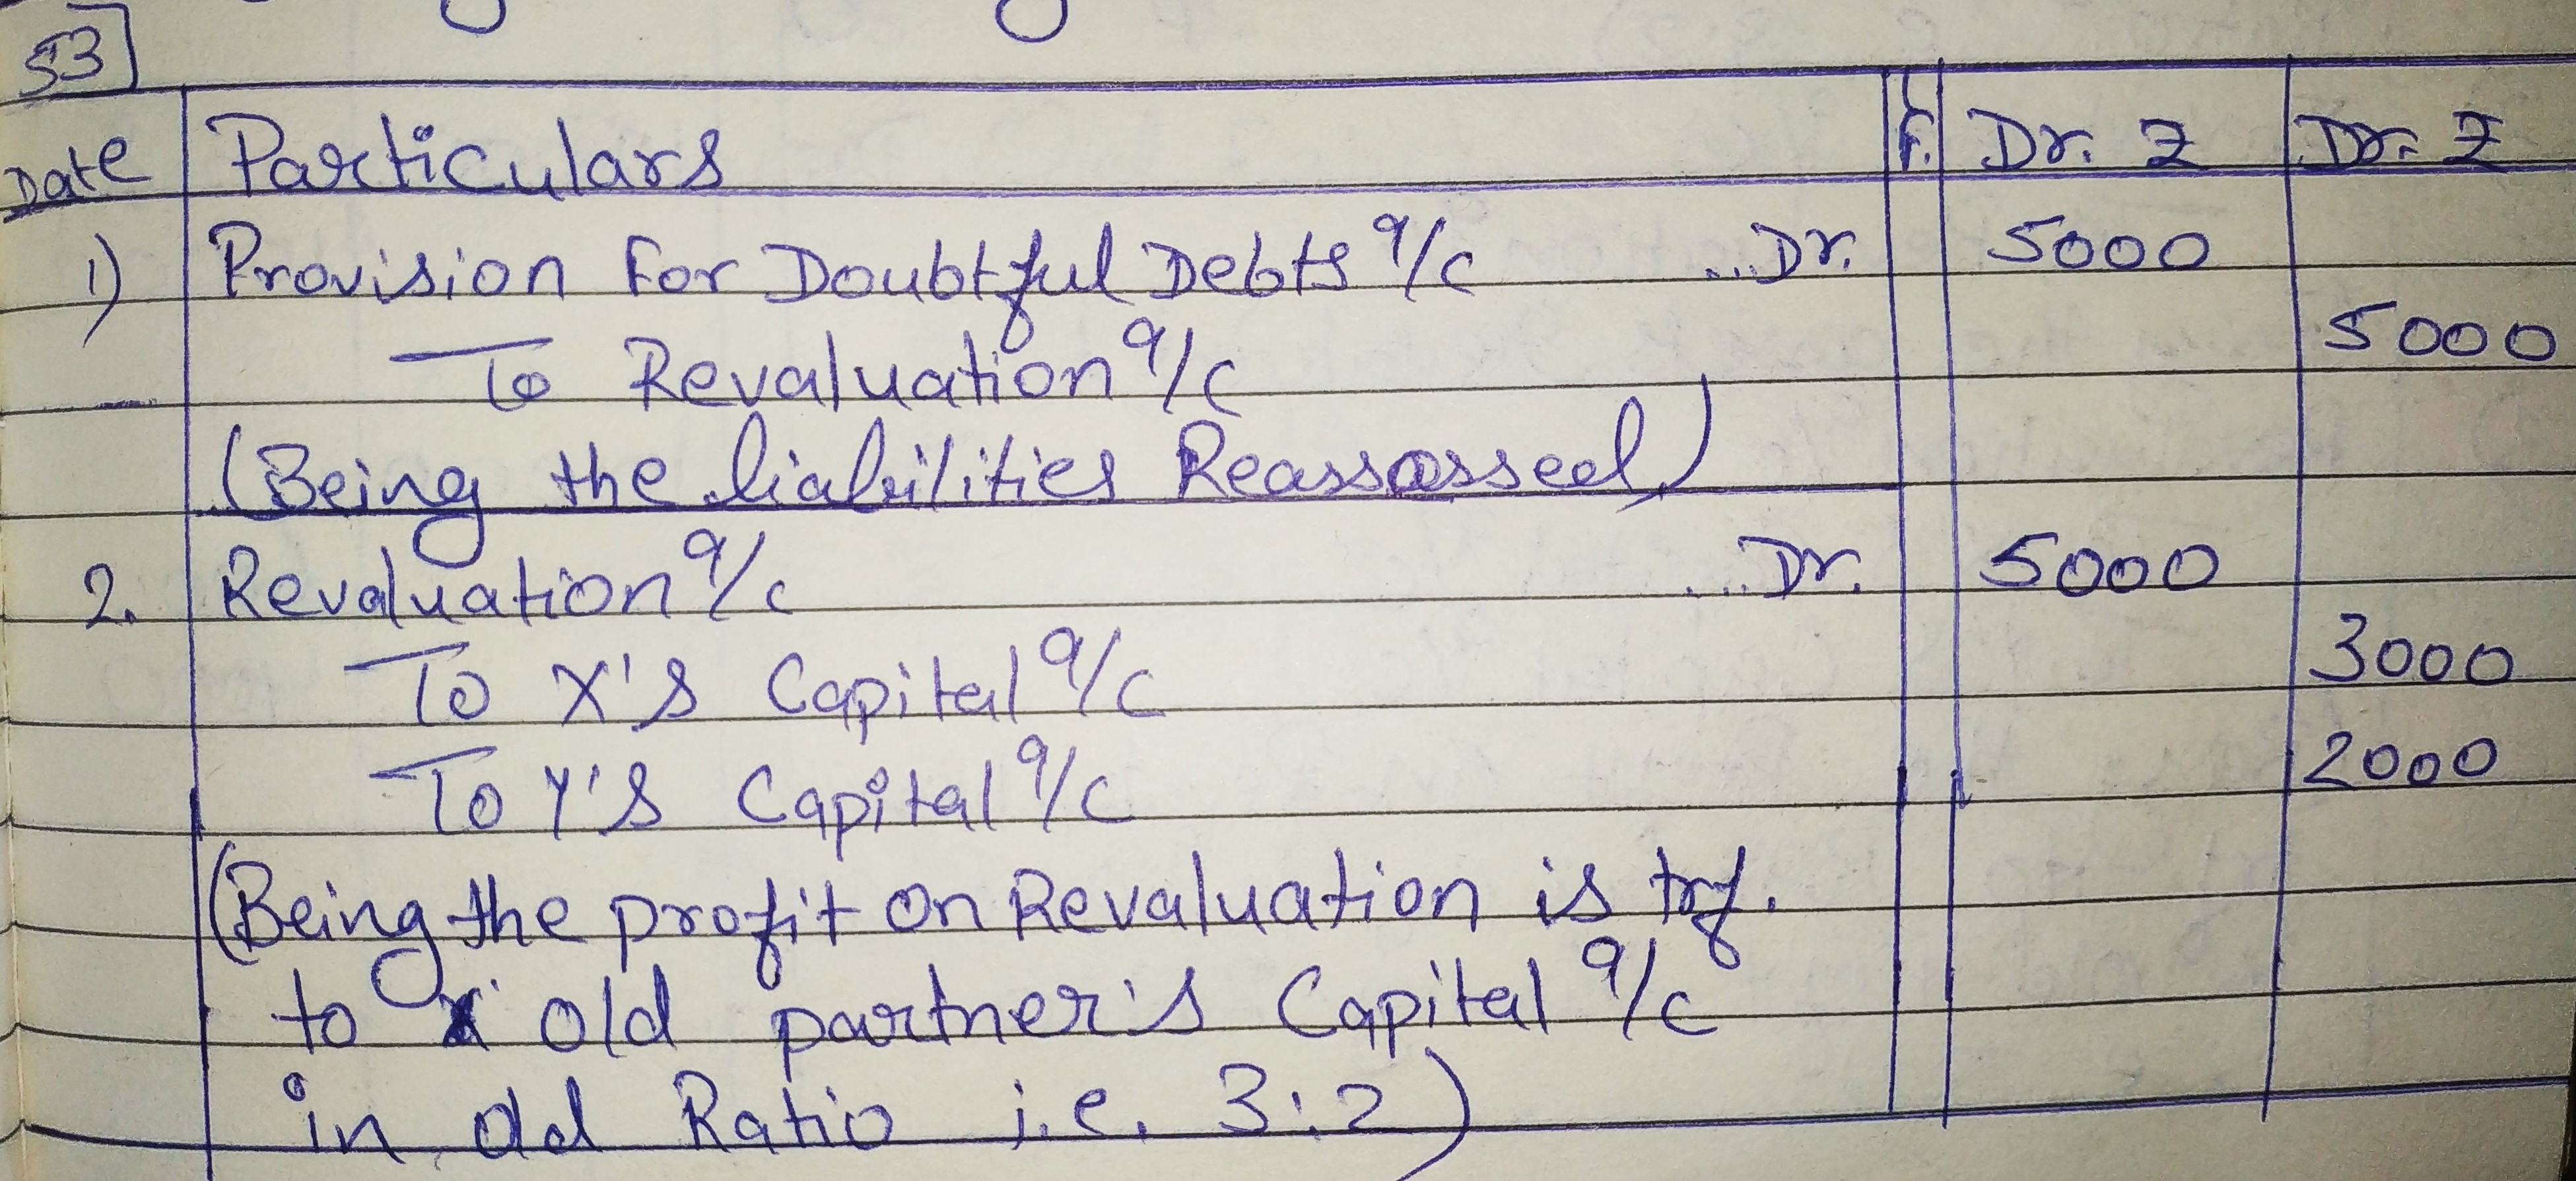 53
Date Particulars F. Dr. ₹ Dr. ₹
1) Provision For Doubtful Debts a/c ...Dr. 5000
To Revaluation a/c 5000
(Being the liabilities Reassassed)
2. Revaluation a/c ...Dr. 5000
To X's Capital a/c 3000
To Y's Capital a/c 2000
(Being the profit on Revaluation is trf.
to old partner's Capital a/c
in old Ratio i.e. 3:2)